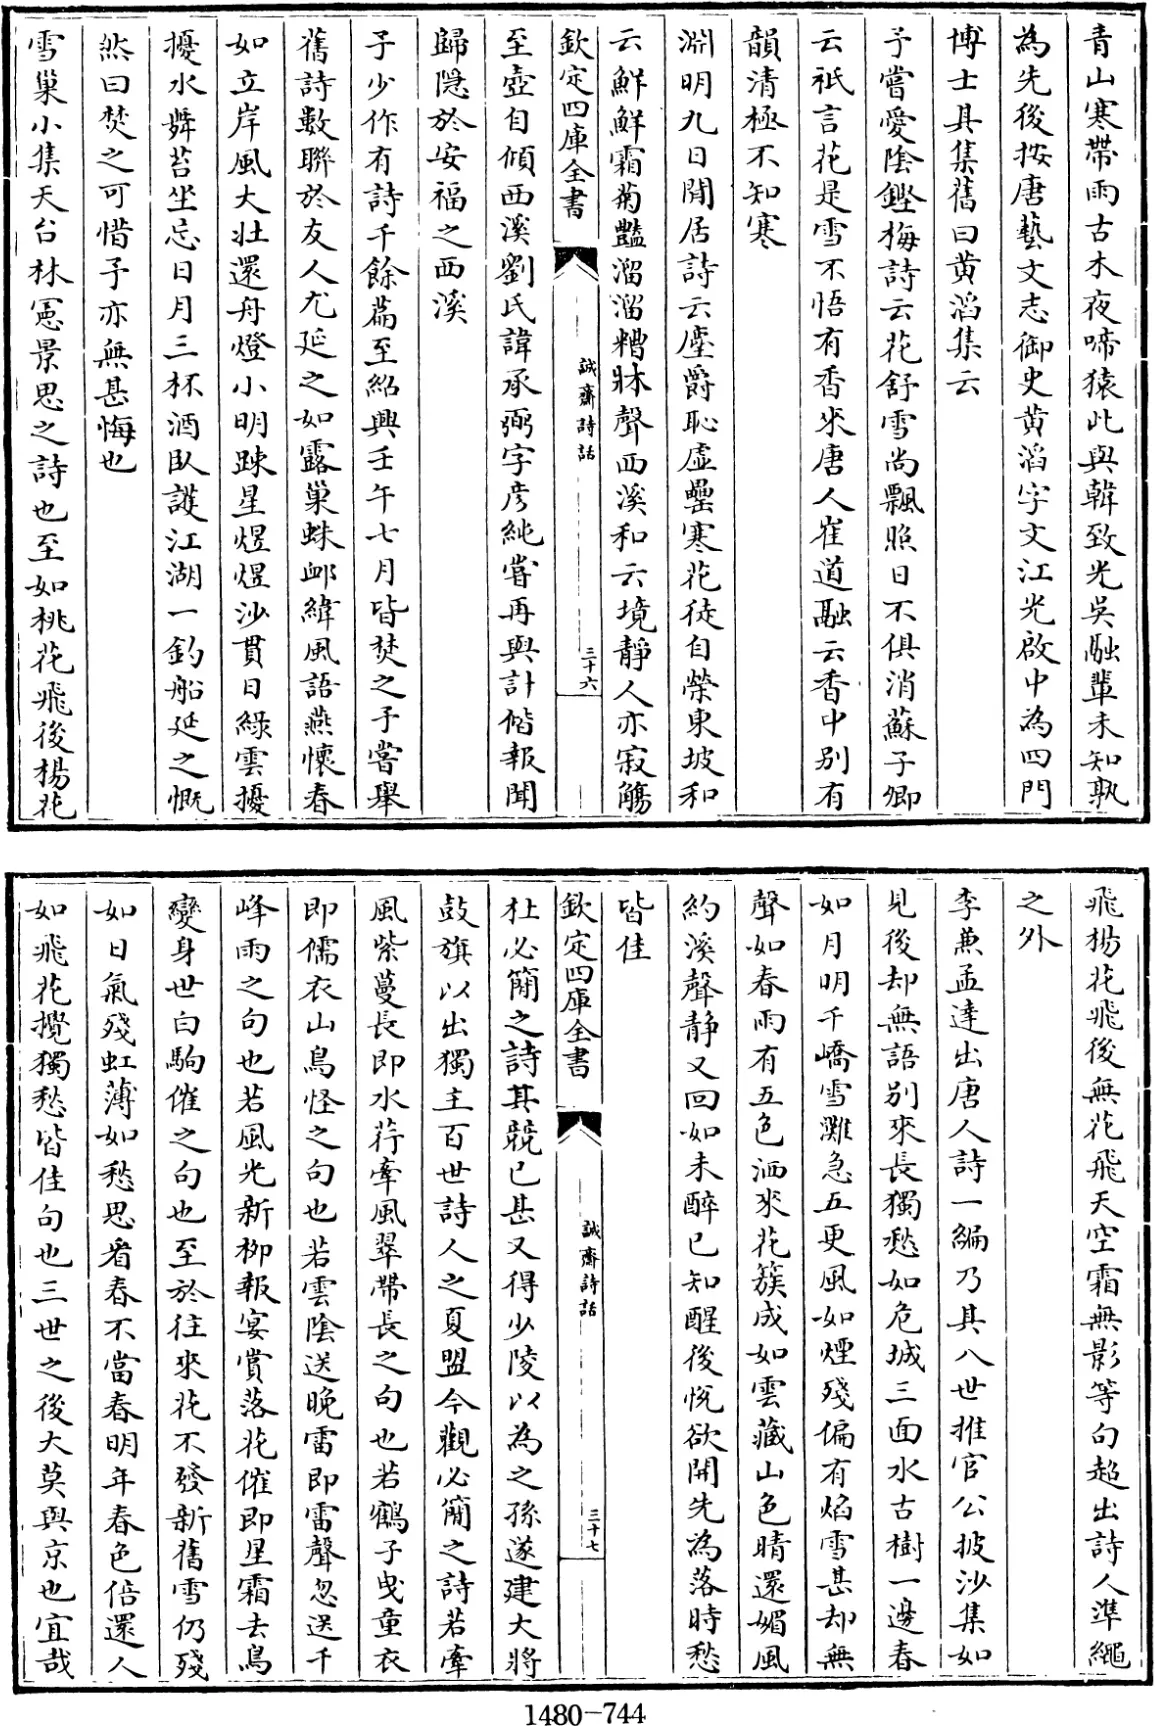 青山寒帶雨古木夜啼猿此與韓致光吳融輩未知孰
為先後按唐藝文志御史黄滔字文江光啟中為四門
博士具集舊曰黄滔集云
予嘗愛陰鏗梅詩云花舒雪尚飄照日不俱消蘇子卿
云秖言花是雪不悟有香來唐人崔道融云香中别有
韻清極不知寒
淵明九日閒居詩云塵爵恥虛罍寒花徒自榮東坡和
云鮮鮮霜菊豔溜溜糟牀聲西溪和云境靜人亦寂觴
欽定四庫全書
誠齋詩話
三十六
至壺自傾西溪劉氏諱承弼字彦純嘗再與計偕報聞
歸隠於安福之西溪
予少作有詩千餘篇至紹興壬午七月皆焚之予嘗舉
舊詩數聯於友人尤延之如露巢蛛䘏緯風語燕懷春
如立岸風大壯還舟燈小明踈星煜煜沙貫日緑雲擾
擾水舞苔坐忘日月三杯酒臥護江湖一釣船延之慨
然曰焚之可惜予亦無甚悔也
雪巢小集天台林憲景思之詩也至如桃花飛後楊花
飛楊花飛後無花飛天空霜無影等句超出詩人準繩
之外
李兼孟達出唐人詩一編乃具八世推官公披沙集如
見後却無語别來長獨愁如危城三面水古樹一邊春
如月明千嶠雪灘急五更風如煙殘偏有焰雪甚却無
聲如春雨有五色洒來花簇成如雲藏山色晴還媚風
約溪聲靜又回如未醉已知醒後恱欲開先為落時愁
皆佳
欽定四庫全書
誠齋詩話
三十七
杜必簡之詩其競已甚又得少陵以為之孫遂建大將
鼓旗以出獨主百世詩人之夏盟今觀必簡之詩若牽
風紫蔓長即水荇牽風翠帶長之句也若鶴子曳童衣
即儒衣山鳥怪之句也若雲陰送晚雷即雷聲忽送千
峰雨之句也若風光新柳報宴賞落花催即星霜去鳥
變身世白駒催之句也至於往來花不發新舊雪仍殘
如日氣殘虹薄如愁思看春不當春明年春色倍還人
如飛花攪獨愁皆佳句也三世之後大莫與京也宜哉
1480-744